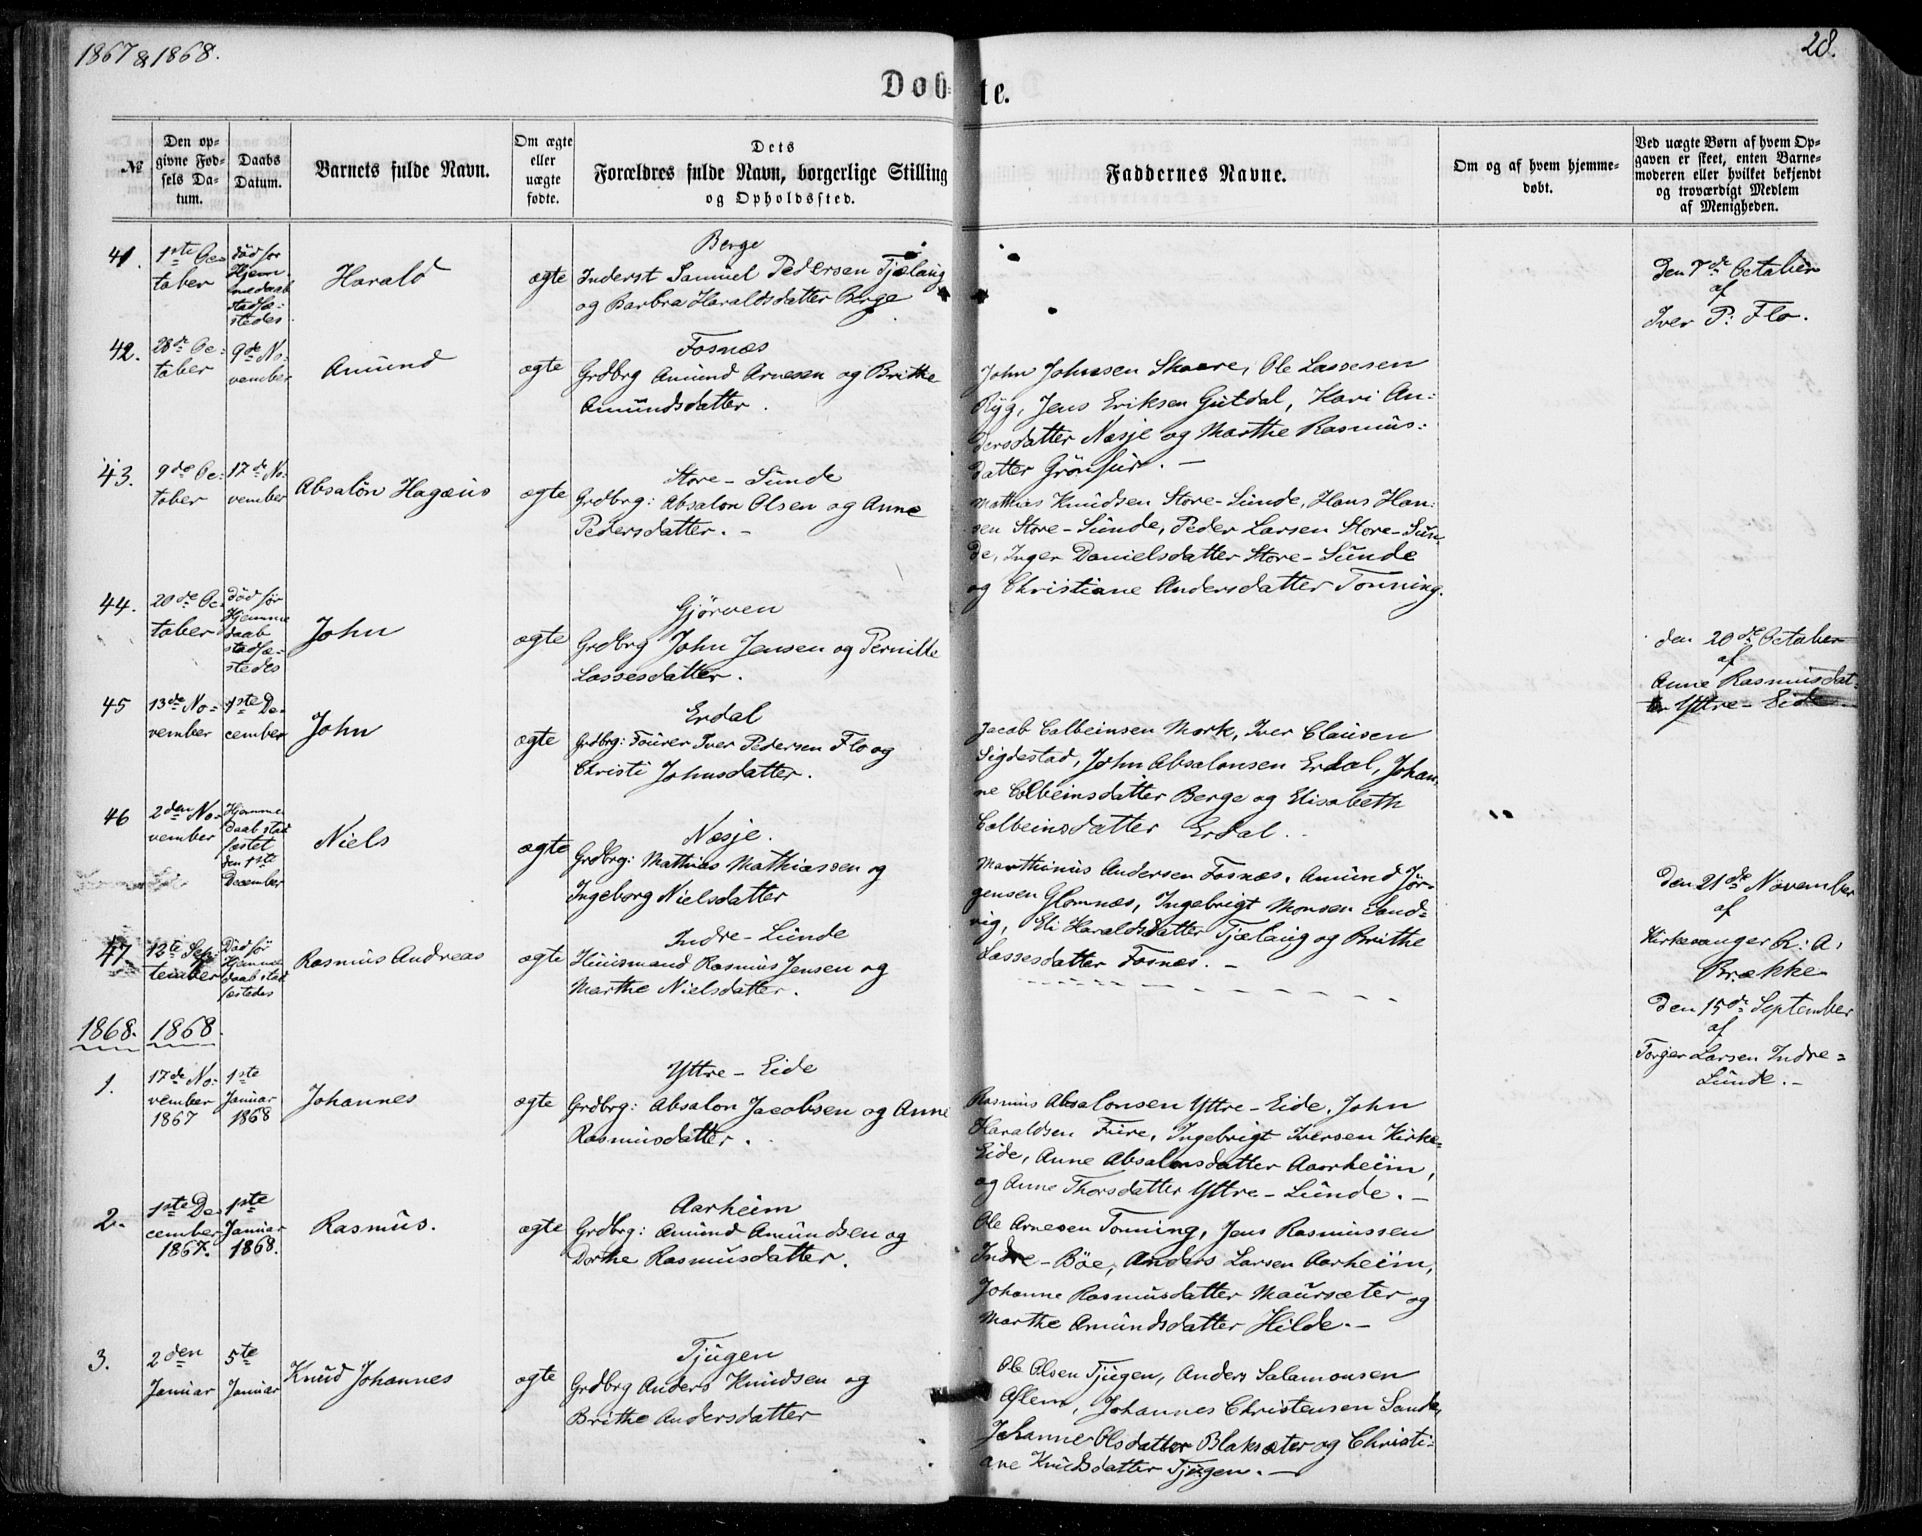 1867 & 1868.
28.
Døbte.
№
Den op-
givne Fød-
sels Da-
tum.
Daabs
Datum.
Barnets fulde Navn.
Om ægte
eller
uægte
fødte.
Dets
Forældres fulde Navn, borgerlige Stilling
og Opholdssted.
Faddernes Navne.
Om og af hvem hjemme-
døbt.
Ved uægte Børn af hvem Op-
gaven er skeet, enten Barne-
moderen eller hvilket bekjendt
og troværdigt Medlem
af Menigheden.
41.
1ste Oc-
tober
död för
Hjem-
medaab
stadfæ-
stedes
Harald
ægte
Berge
Inderst Samuel Pedersen Tjælaug
og Barbra Haraldsdatter Berge
Den 7de October
af
Iver P: Flo.
42.
28de Oc-
tober
9de No-
vember
Amund
ægte
Fosnæs
Grdbrg Amund Arnesen og Brithe
Amundsdatter.
John Johnsen Skaare, Ole Lassesen
Ryg, Jens Eriksen Gutdal, Kari An-
dersdatter Næsje og Marthe Rasmus-
datter Grönfur. -
43.
9de Oc-
tober
17de No-
vember
Absalon Hagæus
ægte
Store-Sunde
Grdbrg: Absalon Olsen og Anne
Pedersdatter. -
Matthias Knudsen Store-Sunde, Hans Han-
sen Store-Sunde, Peder Larsen Store-Sun-
de, Inger Danielsdatter Store-Sunde
og Christiane Andersdatter Tonning.
44.
20de Oc-
tober
död för
Hjemme
daab
stadfæ-
stedes
John
ægte
Gjörven
Grdbrg John Jensen og Pernille
Lassesdatter.
den 20de October
af
Anne Rasmusdat-
ter Yttre-Eide
45
13de No-
vember
1ste De-
cember
John
ægte
Erdal
Grdbrg: Fourer Iver Pedersen Flo og
Christi Johnsdatter.
Jacob Colbeinsen Mork, Iver Clausen
Sigdestad, John Absalonsen Erdal, Johan-
ne Colbeinsdatter Berge og Elisabeth
Colbeinsdatter Erdal.
46
2den No-
vember
Hjemme
daab stad
fæstet
den 1ste
December
Niels
ægte
Næsje.
Grdbrg: Mathias Mathiassen og
Ingeborg Nielsdatter
Marthinus Andersen Fosnæs, Amund Jör-
gensen Glomnæs, Ingebrigt Monsen Sand-
vig, Eli Haraldsdatter Tjælaug og Brithe
Lassesdatter Fosnæs. -
Den 21de November
af
Kirkesanger R: A:
Brække
47
12te Sep-
tember
Död för
Hjemme
daab stad
fæstedes
Rasmus Andreas
ægte
Indre-Lunde
Huusmand Rasmus Jensen og
Marthe Nielsdatter.
Den 15de September
af
Torger Larsen Indre-
Lunde. -
1868. 1868.
1.
17de No-
vember
1867
1ste
Januar
1868
Johannes
ægte
Yttre-Eide
Grdbrg: Absalon Jacobsen og Anne
Rasmusdatter.
Rasmus Absalonsen Yttre-Eide, John
Haraldsen Fure, Ingebrigt Iversen Kirke-
Eide, Anne Absalonsdatter Aarheim,
og Anne Thorsdatter Yttre-Lunde. -
2.
1ste De-
cember
1867.
1ste
Januar
1868.
Rasmus.
ægte
Aarheim
Grdbrg: Amund Amundsen og
Dorthe Rasmusdatter.
Ole Arnesen Tonning, Jens Rasmussen
Indre-Böe, Anders Larsen Aarheim,
Johanne Rasmusdatter Maursæter og
Marthe Amundsdatter Hilde. -
3.
2den
Januar
5te
Januar
Knud Johannes
ægte
Tjugen
Grdbrg Anders Knudsen og
Brithe Andersdatter
Ole Olsen Tjugen, Anders Salamonsen
Aflem, Johannes Christensen Sande,
Johanne Olsdatter Blaksæter og Christi-
ane Knudsdatter Tjugen. -